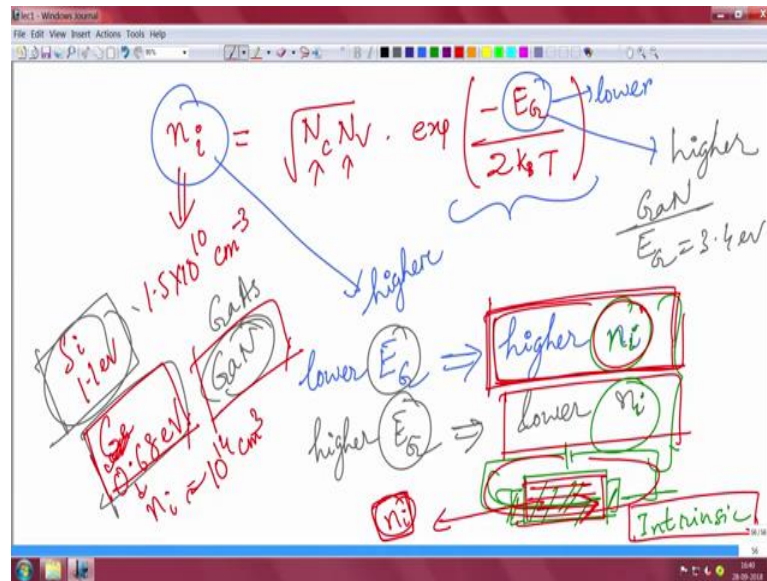 lec1 - Windows Journal
File Edit View Insert Actions Tools Help
n_i = √(N_c N_V) · exp (-E_G / 2k_B T)
lower
higher
GaN
E_G = 3.4 eV
1.5×10^10 cm^-3
higher
Si
1.1 eV
GaAs
GaN
Ge
0.68 eV
n_i ≈ 10^14 cm^-3
lower E_G ⇒ higher n_i
higher E_G ⇒ lower n_i
n_i
Intrinsic
56
16:40
28-09-2018